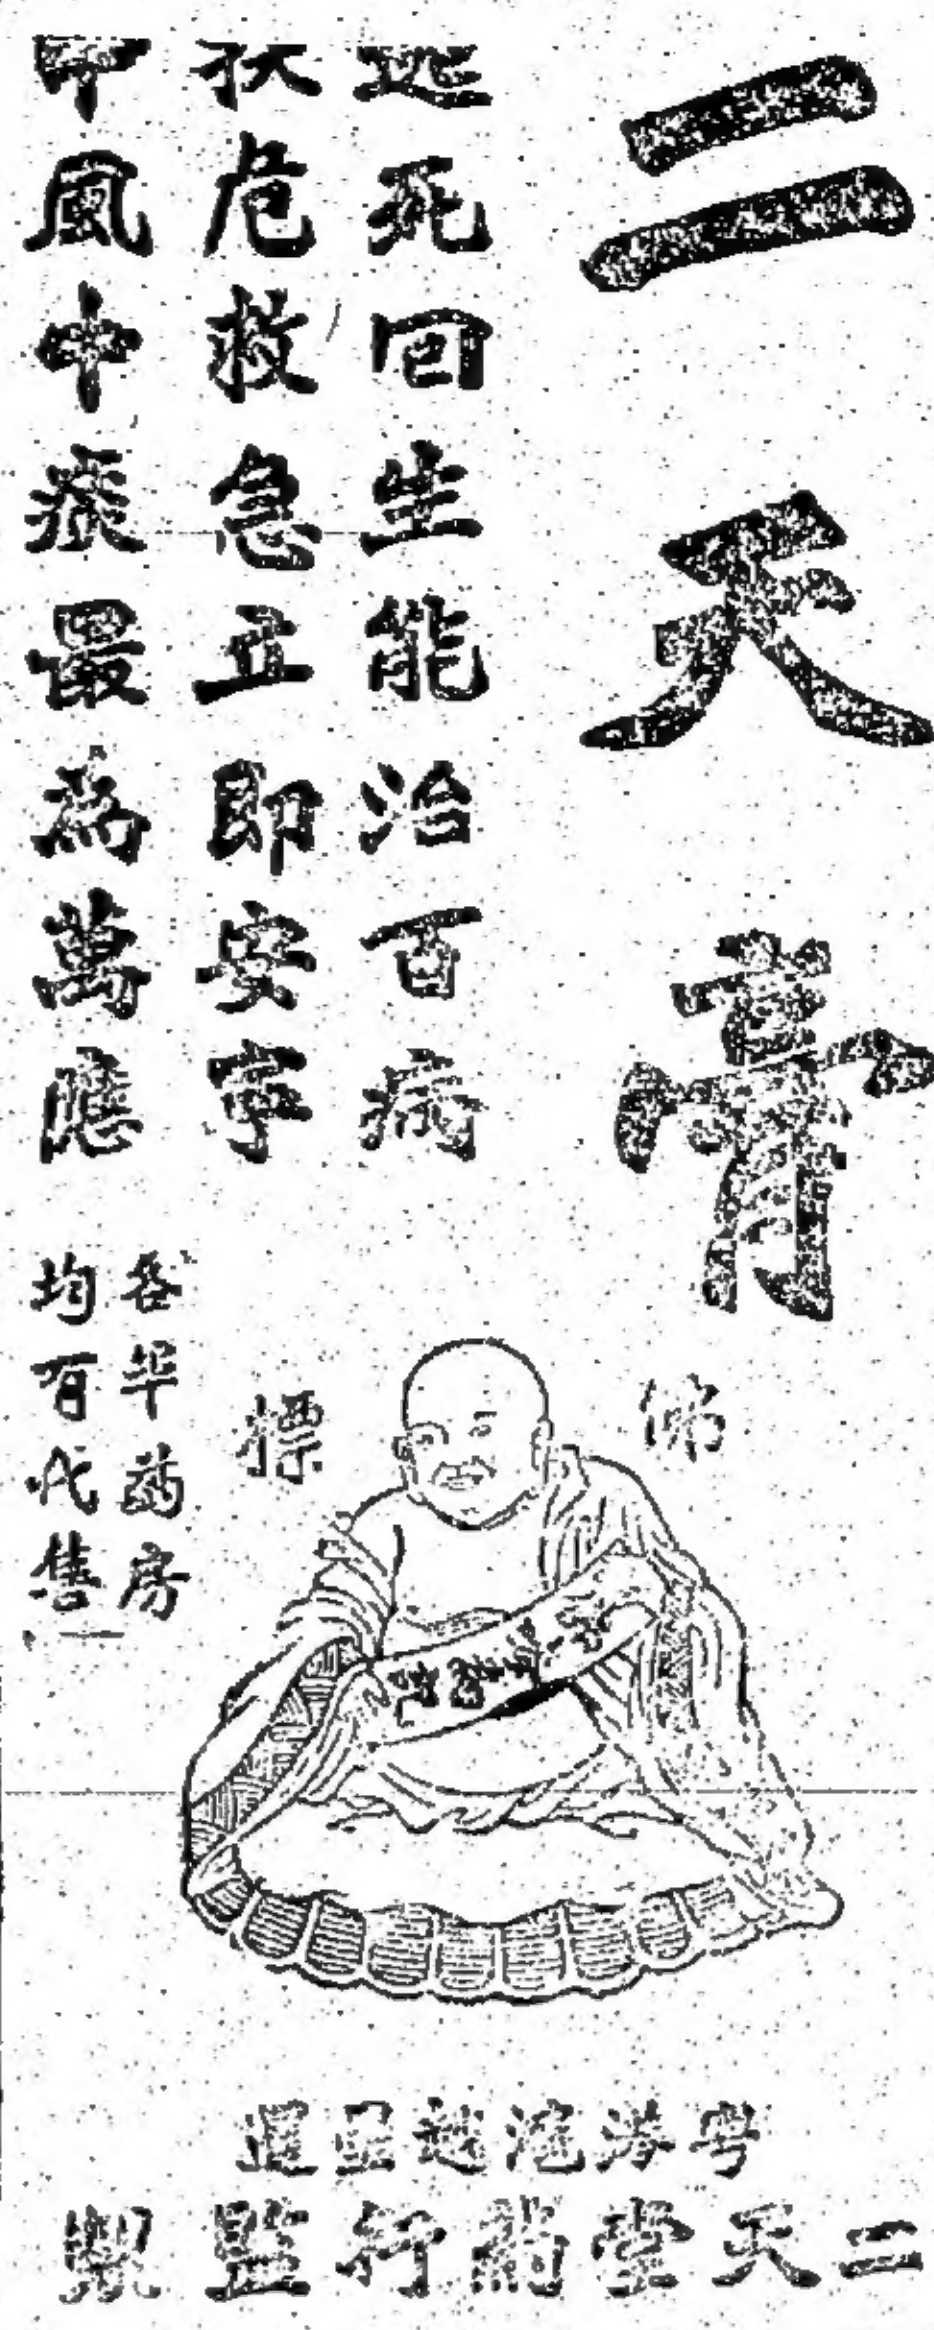 二天膏
起死回生能治百病
扶危救急立即安寧
中風中痰最為萬應
佛標
各 药房
均有代售
粤港滬越星暹
二天堂葯行監製